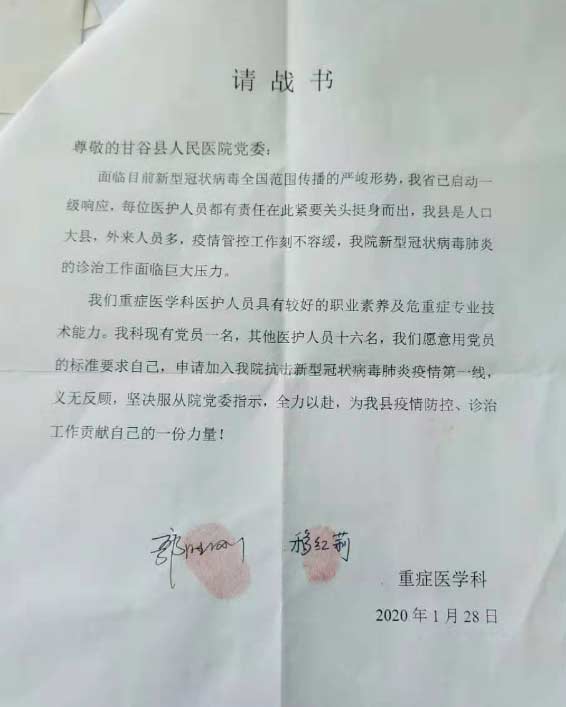 请战书
尊敬的甘谷县人民医院党委：
面临目前新型冠状病毒全国范围传播的严峻形势，我省已启动一
级响应，每位医护人员都有责任在此紧要关头挺身而出，我县是人口
大县，外来人员多，疫情管控工作刻不容缓，我院新型冠状病毒肺炎
的诊治工作面临巨大压力。
我们重症医学科医护人员具有较好的职业素养及危重症专业技
术能力。我科现有党员一名，其他医护人员十六名，我们愿意用党员
的标准要求自己，申请加入我院抗击新型冠状病毒肺炎疫情第一线，
义无反顾，坚决服从院党委指示，全力以赴，为我县疫情防控、诊治
工作贡献自己的一份力量！
红莉
重症医学科
2020 年 1 月 28 日